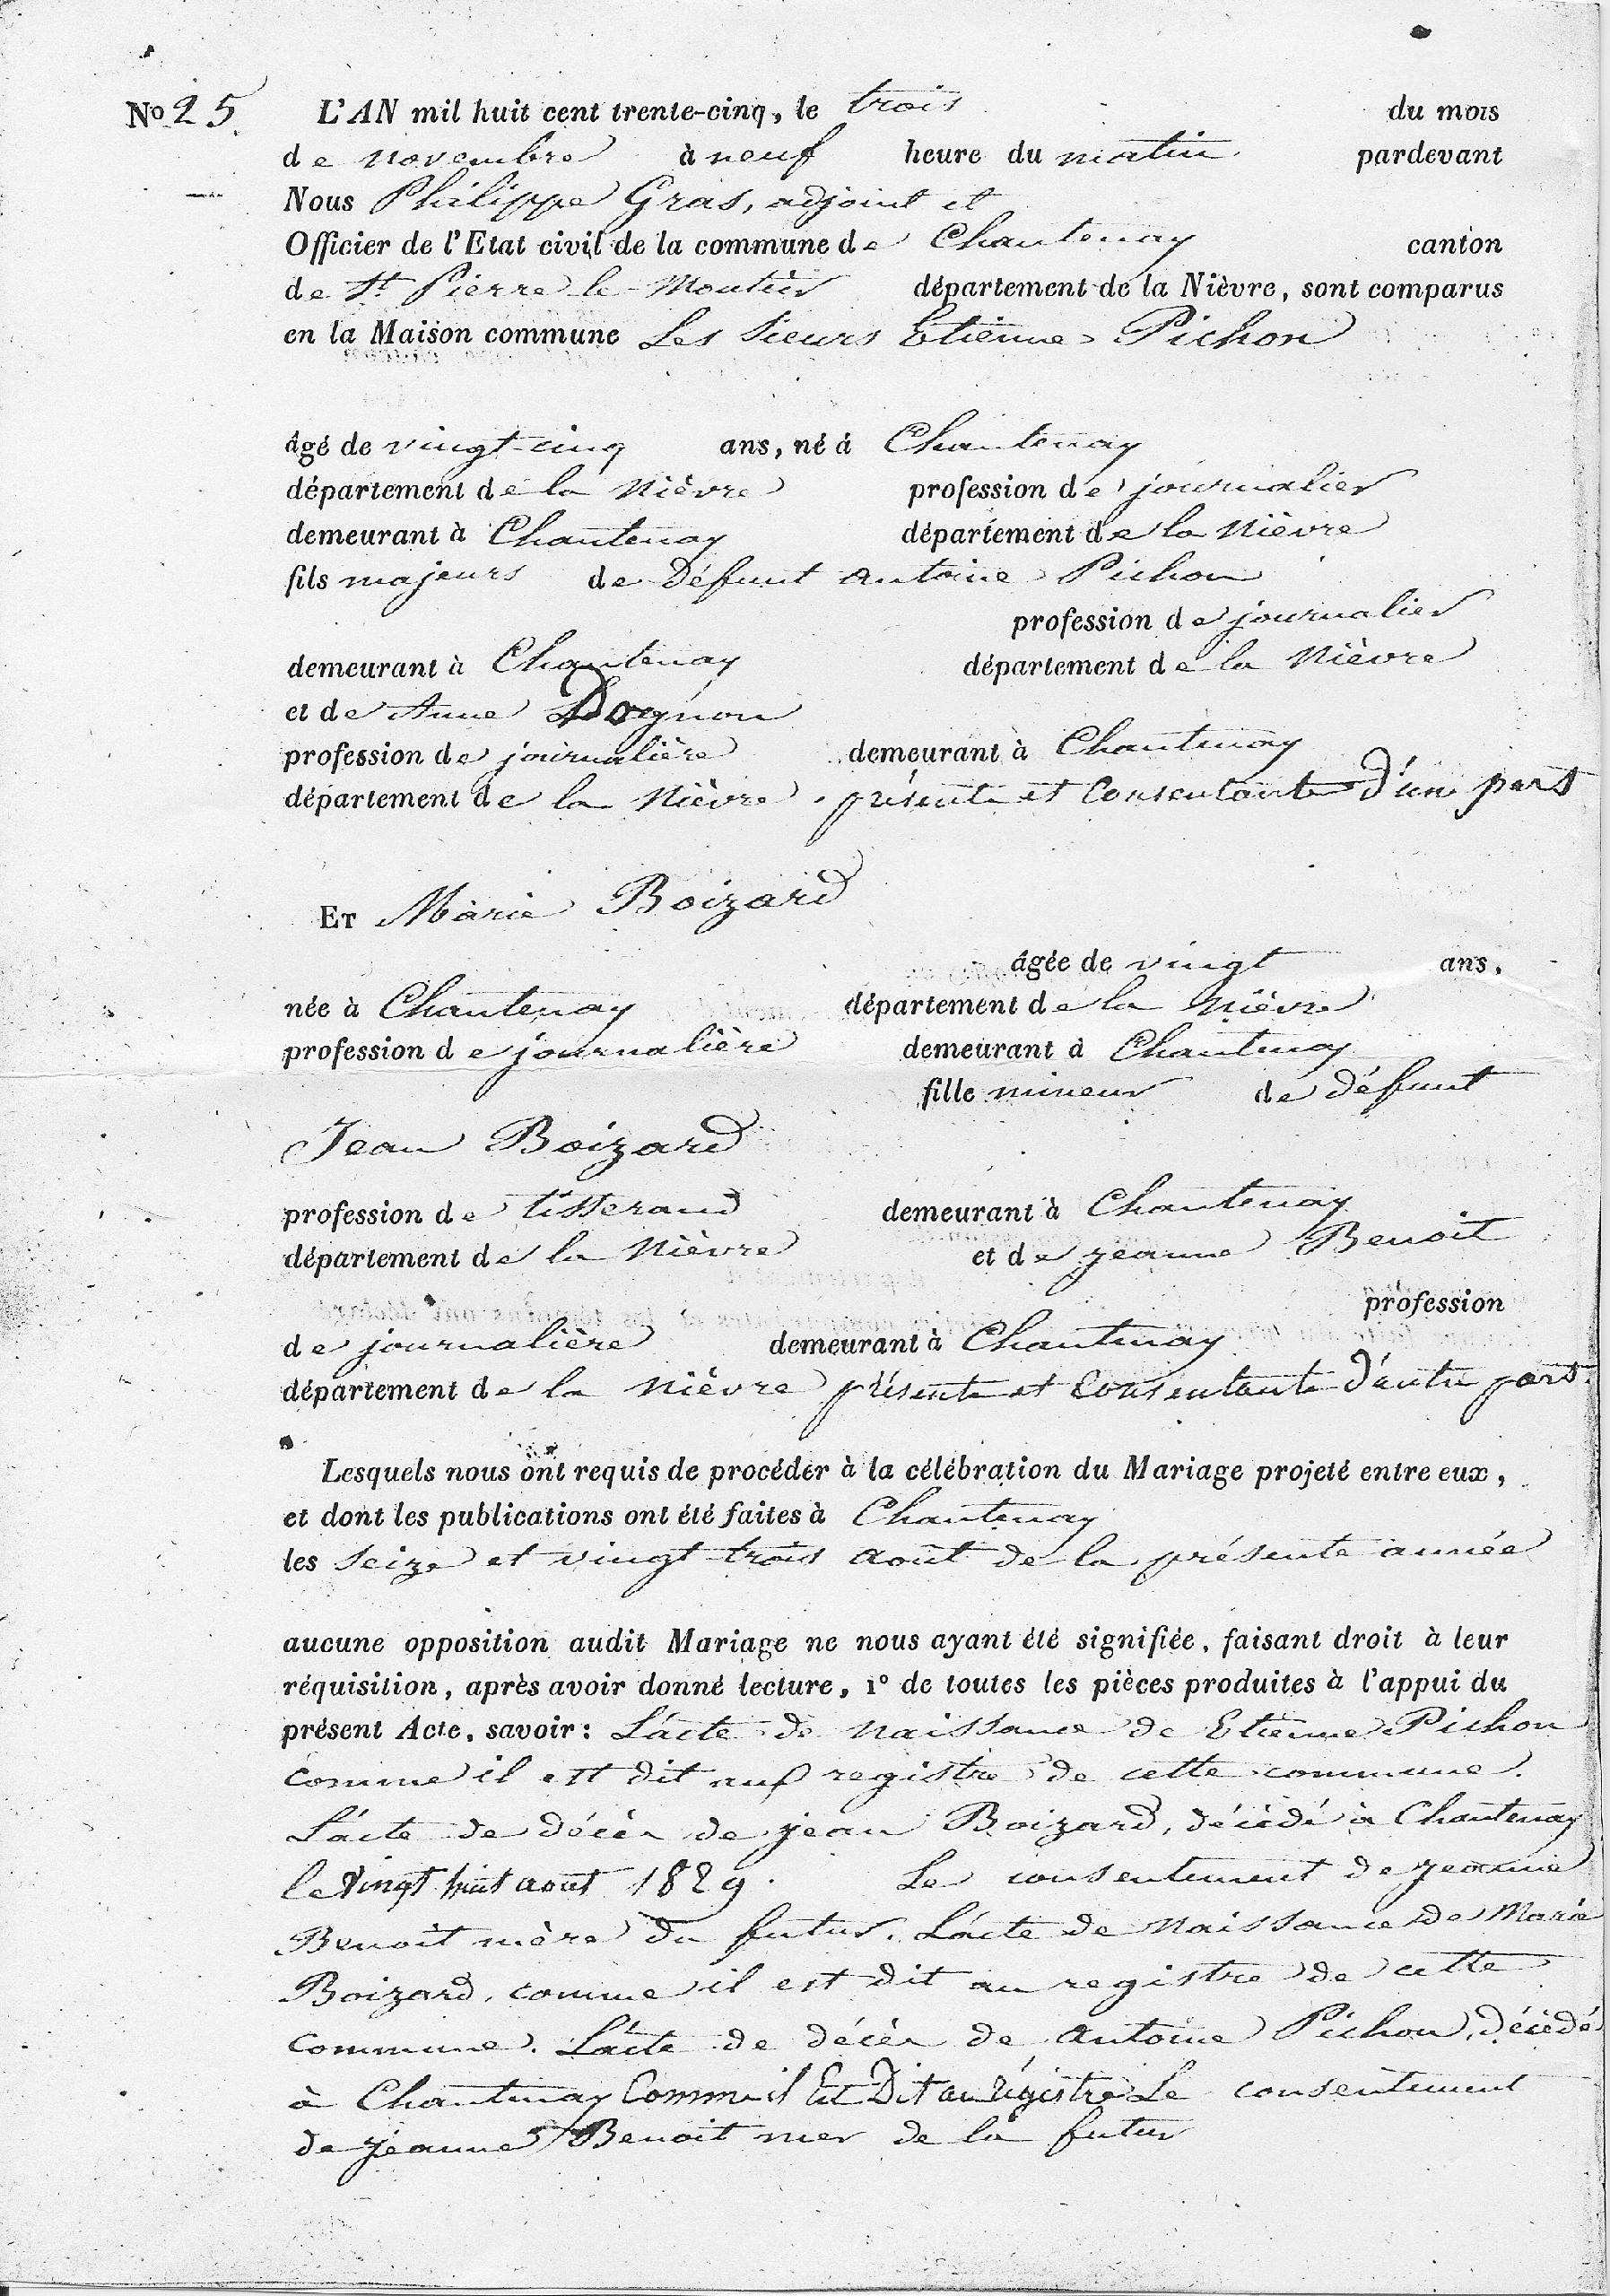 No 25. L'AN mil huit cent trente-cinq, le trois du mois
de novembre à neuf heure du matin. pardevant
Nous Philippe Gras, adjoint et
Officier de l'Etat civil de la commune de Chantenay canton
de St. Pierre le Moutier département de la Nièvre, sont comparus
en la Maison commune Les Sieurs Etienne Pichon
âgé de vingt-cinq ans, né à Chantenay
département de la Nièvre profession de journalier
demeurant à Chantenay département de la Nièvre
fils majeurs de Défunt Antoine Pichon
profession de journalier
demeurant à Chantenay département de la Nièvre
et de Anne Dognon
profession de journalière demeurant à Chantenay
département de la Nièvre. présente et Consentante D'une part
ET Marie Boizard
âgée de vingt ans,
née à Chantenay département de la Nièvre
profession de journalière demeurant à Chantenay
fille mineur de Défunt
Jean Boizard
profession de tisserand demeurant à Chantenay
département de la Nièvre et de jeanne Benoit
profession
de journalière demeurant à Chantenay
département de la Nièvre présente et Consentante D'autre part.
Lesquels nous ont requis de procéder à la célébration du Mariage projeté entre eux,
et dont les publications ont été faites à Chantenay
les Seize et vingt-trois août de la présente année
aucune opposition audit Mariage ne nous ayant été signifiée, faisant droit à leur
réquisition, après avoir donné lecture, 1° de toutes les pièces produites à l'appui du
présent Acte, savoir: L'acte de Naissance de Etienne Pichon
comme il est dit aux registre de cette commune.
L'acte de décès de jean Boizard, décédé à Chantenay
le Vingt huit aout 1829. Le consentement de jeanne
Benoit mère du futur. L'acte de Naissance de Marie
Boizard, comme il est dit au registre de cette
commune. L'acte de décès de Antoine Pichon, Décédé
à Chantenay Comme il Est Dit au Régistre Le consentement
de jeanne Benoit mer de la futur